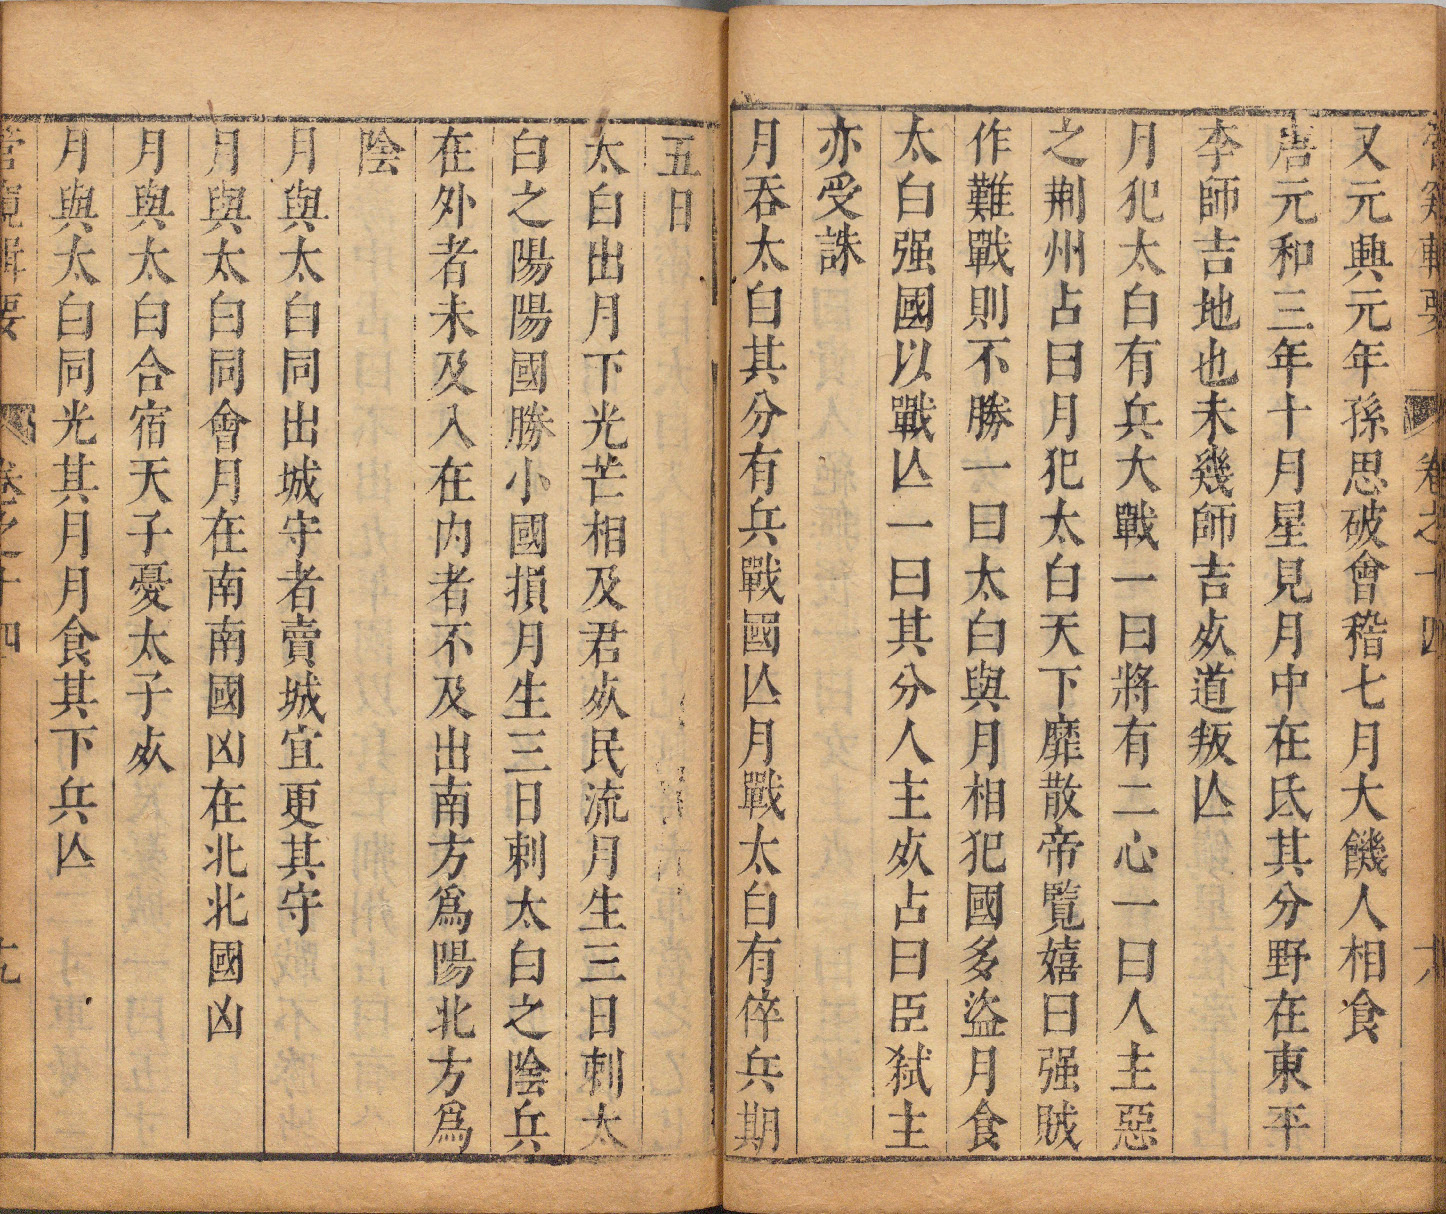 管窺輯要 卷之十四 十八
又元興元年孫思破會稽七月大饑人相食
唐元和三年十月星見月中在氐其分野在東平
李師吉地也未幾師吉𣦸道叛亾
月犯太白有兵大戰一曰將有二心一曰人主惡
之荆州占曰月犯太白天下靡散帝覽嬉曰强賊
作難戰則不勝一曰太白與月相犯國多盜月食
太白强國以戰亾一曰其分人主𣦸占曰臣弑主
亦受誅
月吞太白其分有兵戰國亾月戰太白有倅兵期
五日
太白出月下光芒相及君𣦸民流月生三日刺太
白之陽陽國勝小國損月生三日刺太白之陰兵
在外者未及入在内者不及出南方爲陽北方爲
陰
月與太白同出城守者賣城宜更其守
月與太白同會月在南南國凶在北北國凶
月與太白合宿天子憂太子𣦸
月與太白同光其月月食其下兵亾
管窺輯要 卷之十四 十九